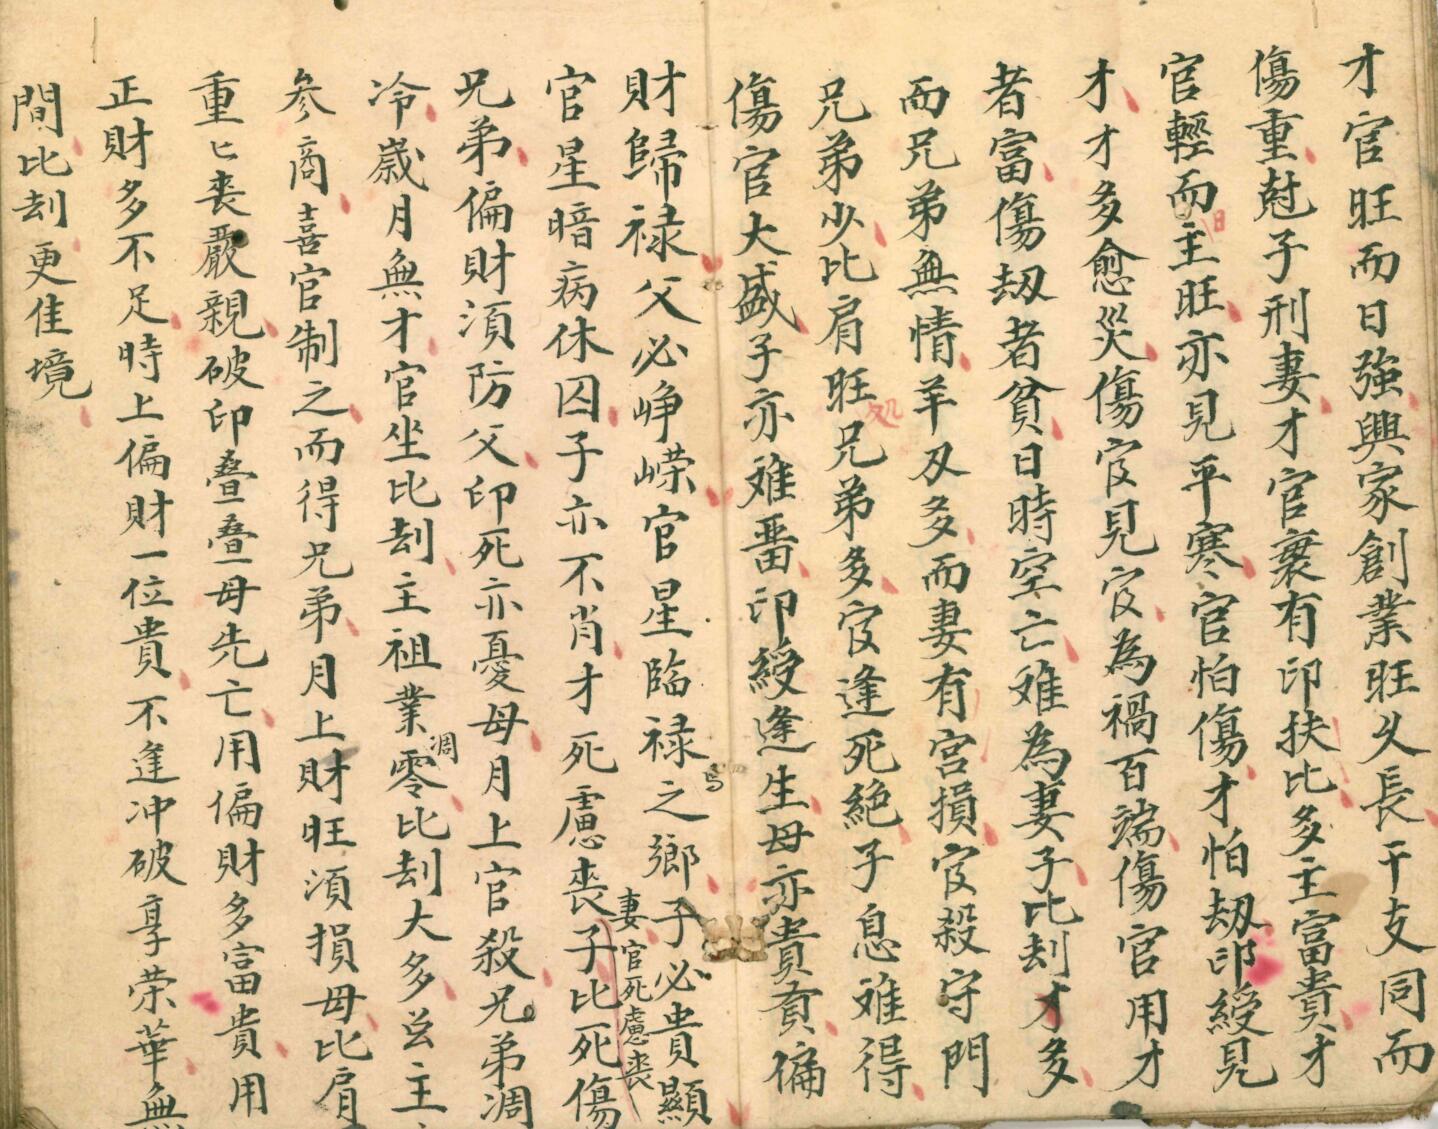 才官旺而日強興家創業旺夂長干支同而
傷重尅子刑妻才官衰有印扶比多主富貴才
官輕而主旺亦見平寒官怕傷才怕劫印綬見
日
才才多愈災傷官見官為禍百端傷官用才
者富傷劫者貧日時空亡难為妻子比刦才多
而兄弟無情羊刃多而妻有宮損官殺守門
兄弟少比肩旺兄弟多官逢死絕子息难得
処
傷官大盛子亦难畱印綬逢生母亦貴賁偏
財歸禄父必崢嶸官星臨禄之鄉子必貴顯
馬
官星暗病休囚子亦不肖才死慮喪子比死傷
妻官死慮喪
兄弟偏財須防父印死亦憂母月上官殺兄弟凋
冷歲月無才官坐比刦主祖業零比刦大多並主
凋
參商喜官制之而得兄弟月上財旺須損母比肩
重匕喪嚴親破印叠叠母先亡用偏財多富貴用
正財多不足時上偏財一位貴不逢冲破享荣華無
間比刦更佳境